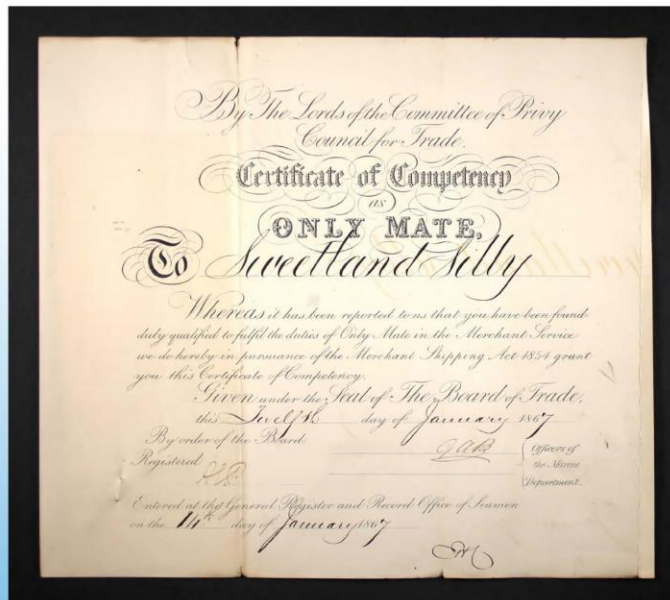 By The Lords of the Committee of Privy
Council for Trade.
Certificate of Competency
as
ONLY MATE,
To Sweetland Silly
Whereas it has been reported to us that you have been found
duly qualified to fulfil the duties of Only Mate in the Merchant Service
we do hereby in pursuance of the Merchant Shipping Act 1854 grant
you this Certificate of Competency.
Given under the Seal of The Board of Trade,
this Twelfth day of January 1867
By order of the Board
GAB
Officers of
the Marine
Department.
Registered
Entered at the General Register and Record Office of Seamen
on the 14th day of January 1867